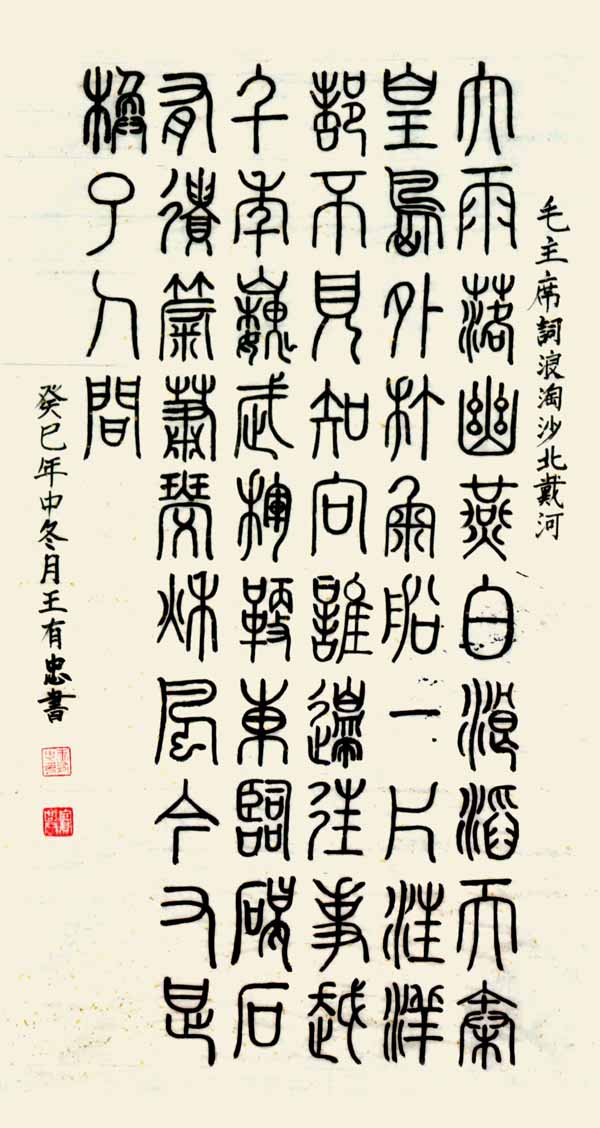 毛主席詞浪淘沙北戴河
大雨落幽燕白浪滔天秦
皇島外打魚船一片汪洋
都不見知向誰邊往事越
千年魏武揮鞭東臨碣石
有遺篇蕭瑟秋風今又是
換了人間
癸巳年中冬月王有忠書